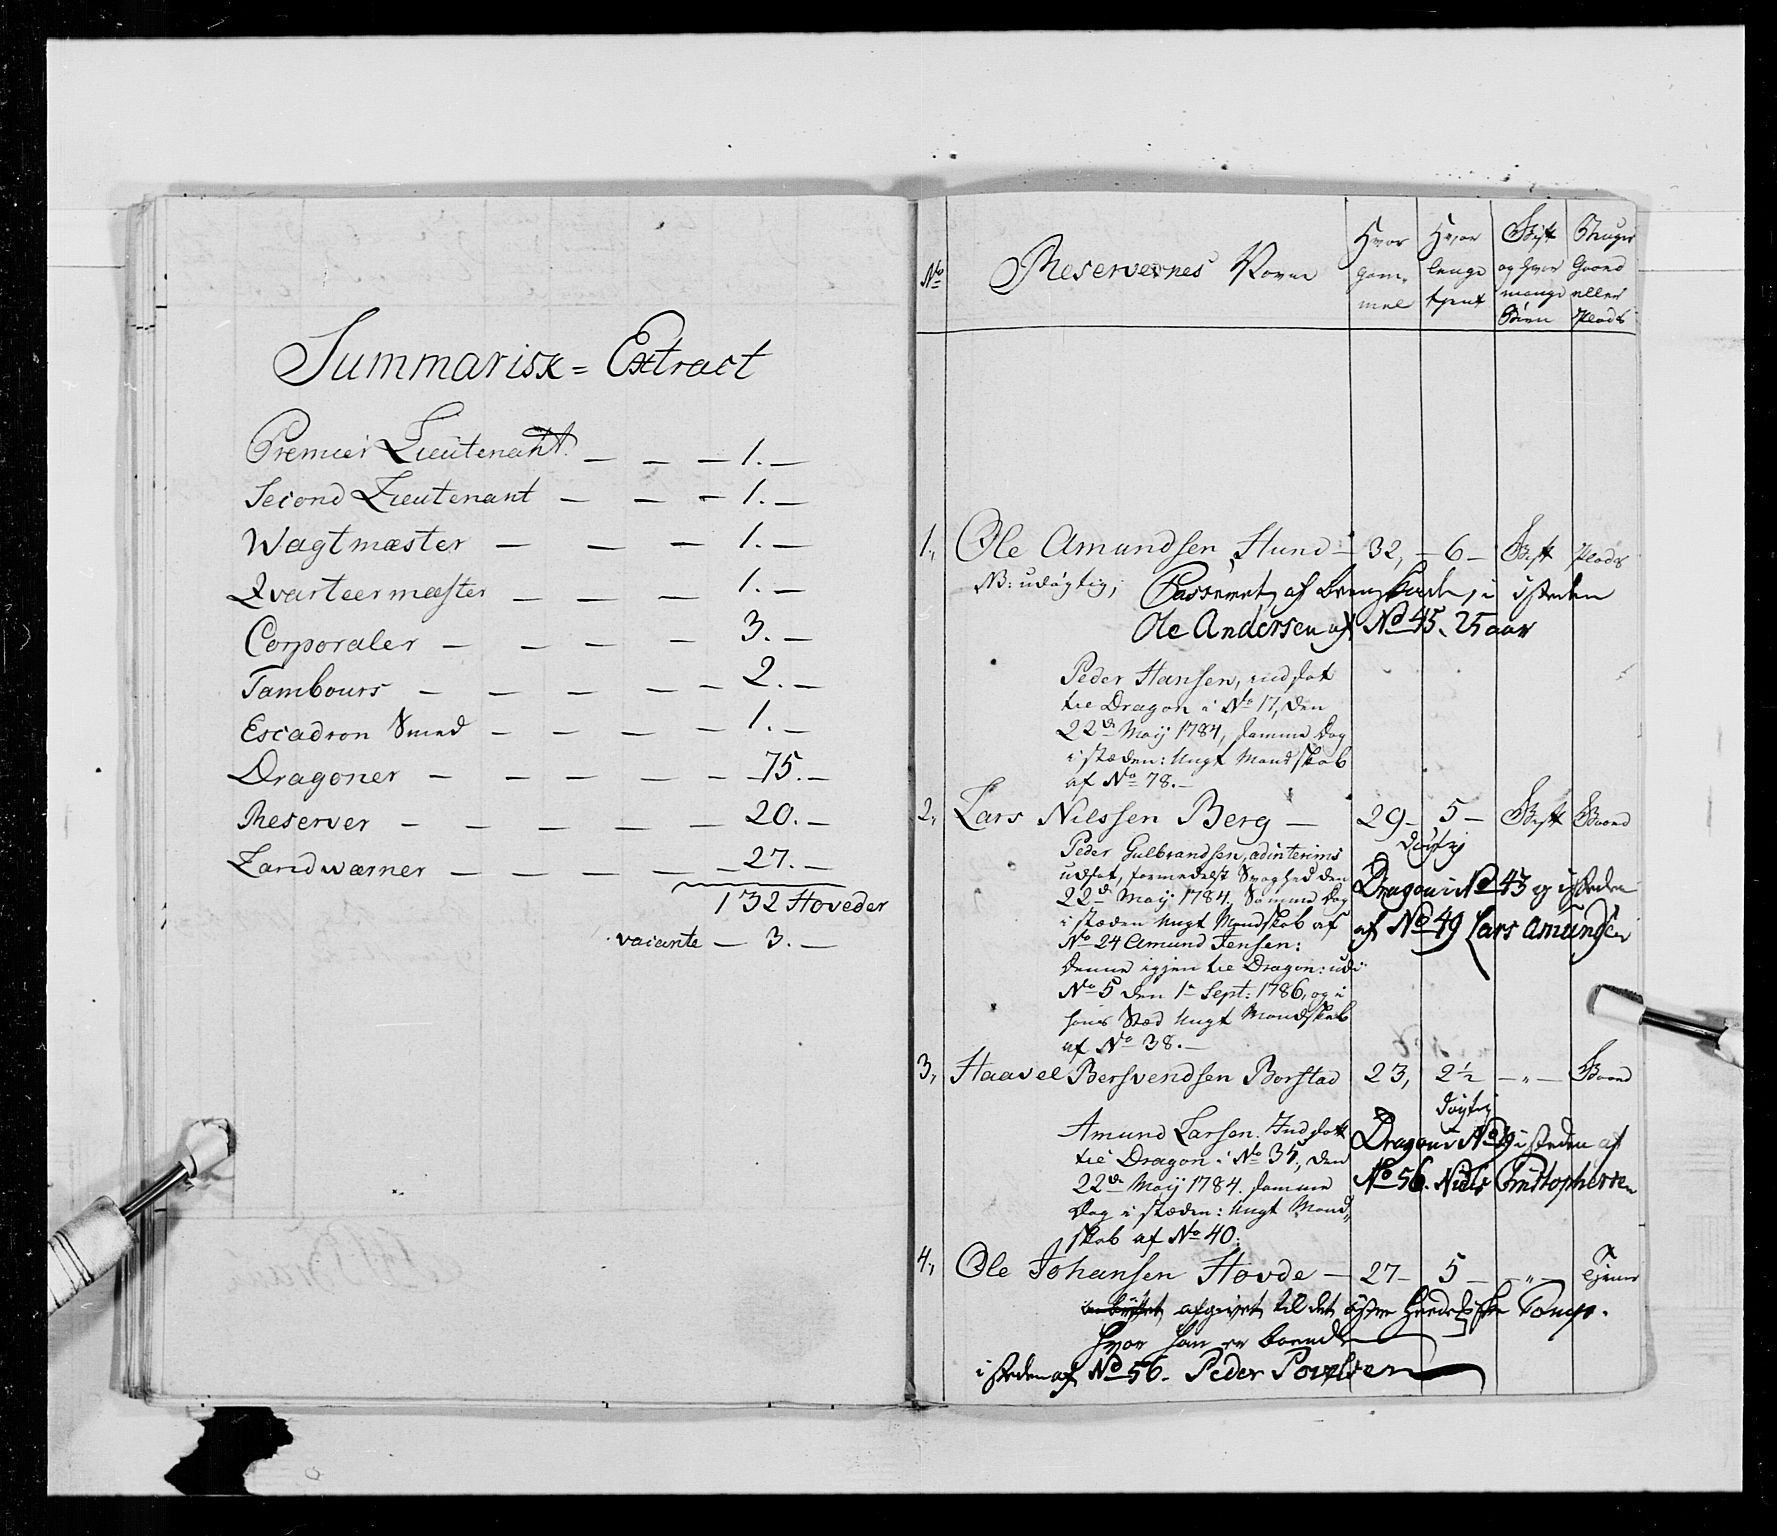 Summarisk = Extract
Premier Lieutenant. — — — 1. —
Second Lieutenant — — — 1. —
Wagtmæster — — — 1. —
Qvarteermæster — — — 1. —
Corporaler — — — — 3. —
Tambours — — — — — 2. —
Escadron Smed — — — — 1. —
Dragoner — — — — — 75. —
Reserver — — — — — 20. —
Landwærner — — — — — 27. —
132 Hoveder
vacante — 3. —
No
Reservernes Navne
Hvor gam- mel
Hvor lenge tjent
Gift og hvor mange Børn
Bruger Gaard eller Plads
1, Ole Amundsen Hund — 32, — 6 — Gift Plads
NB: udygtig, Casseret af i steden
Ole Andersen af No 45. 25 aar
Peder Hansen, indsat
til Dragon i No 17, den
22de Maij 1784, samme Dag
i stæden: Ungt Mandskab
af No 78. —
2, Lars Nilssen Berg — 29 — 5 — Gift Gaard
dygtig
Peder Gulbrandsen, adinterims
udsat, formedelst Svaghed den
22de Maij 1784, Samme Dag
i stæden Ungt Mandskab af
No 24 Amund Jensen:
Dragon i No 43 og i steden
af No 49 Lars Amundsen
denne igjen til Dragon: udi
No 5 den 1te Sept: 1786, og i
hans Stæd Ungt Mandskab
af No 38. —
3, Haavel Bersvendsen Borstad 23, 2½ — „ — Gaard
dygtig
Amund Larsen. Indsatt
til Dragon i No 35, den
22de Maij 1784. samme
Dag i stæden: Ungt Mand„
skab af No 40:
Dragon i No 19 i steden af
No 56. Niels Christophersen
4, Ole Johansen Hovde — 27 — 5 — „ — Tjener
afgivet til det Comp.
hvor han er boende
i steden af No 56. Peder Povelsen